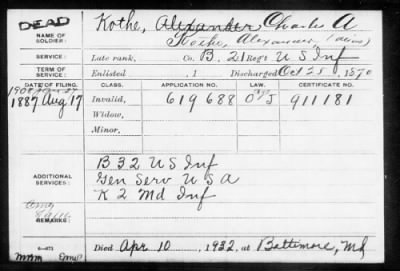 DEAD
Kothe, Alexander, Charles A
NAME OF SOLDIER:
Kothe, Alexander (alias)
SERVICE:
Late rank, Co. B. 21 Reg't U S Inf
TERM OF SERVICE:
Enlisted , 1 Discharged Oct 25, 1870
DATE OF FILING.
CLASS.
APPLICATION NO.
LAW.
CERTIFICATE NO.
1908
1887 Aug 17
Invalid, 619688 911181
Widow,
Minor,
ADDITIONAL SERVICES:
B 32 U S Inf
Gen Serv U S A
K 2 Md Inf
REMARKS:
Died Apr 10, 1932, at Baltimore, Md